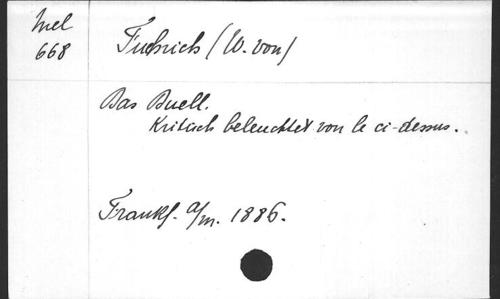 Mel
668
Fuhrich (W. von)
Das Duell.
Kritisch beleuchtet von le ci-dessus.
Frankf. a/m. 1886.